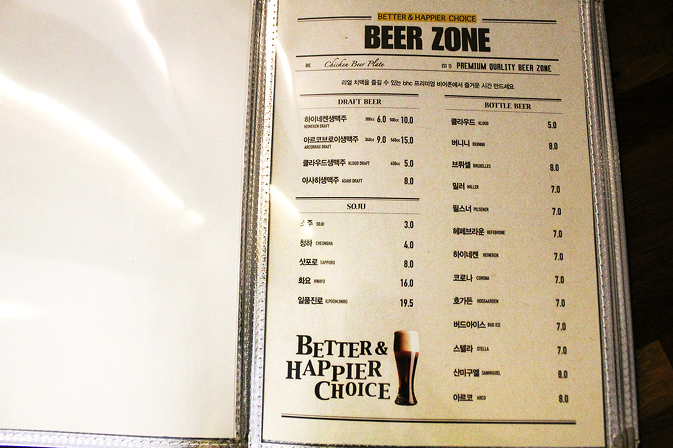 BETTER & HAPPIER CHOICE
BEER ZONE
Chicken Beer Plate
PREMIUM QUALITY BEER ZONE
리얼 치맥을 즐길 수 있는 bhc 프리미엄 비어존에서 즐거운 시간 만드세요
DRAFT BEER
하이네켄생맥주 300cc 6.0 500cc 10.0
HEINEKEN DRAFT
아르코브로이생맥주 9.0 15.0
ARCOBRAU DRAFT
클라우드생맥주 KLOUD DRAFT 5.0
아사히생맥주 ASAHI DRAFT 8.0
SOJU
소주 SOJU 3.0
청하 CHEONGHA 4.0
삿포로 SAPPORO 8.0
화요 HWAYO 16.0
일품진로 ILPOUMJINRO 19.5
BOTTLE BEER
클라우드 KLOUD 5.0
버니니 BERNINI 8.0
브뤼셀 BRUXELLES 8.0
밀러 MILLER 7.0
필스너 PILSENER 7.0
헤페브라운 7.0
하이네켄 HEINEKEN 7.0
코로나 CORONA 7.0
호가든 HOEGAARDEN 7.0
버드아이스 BUD ICE 7.0
스텔라 STELLA 7.0
산미구엘 SANMIGUEL 8.0
아르코 ARCO 8.0
BETTER &
HAPPIER
CHOICE